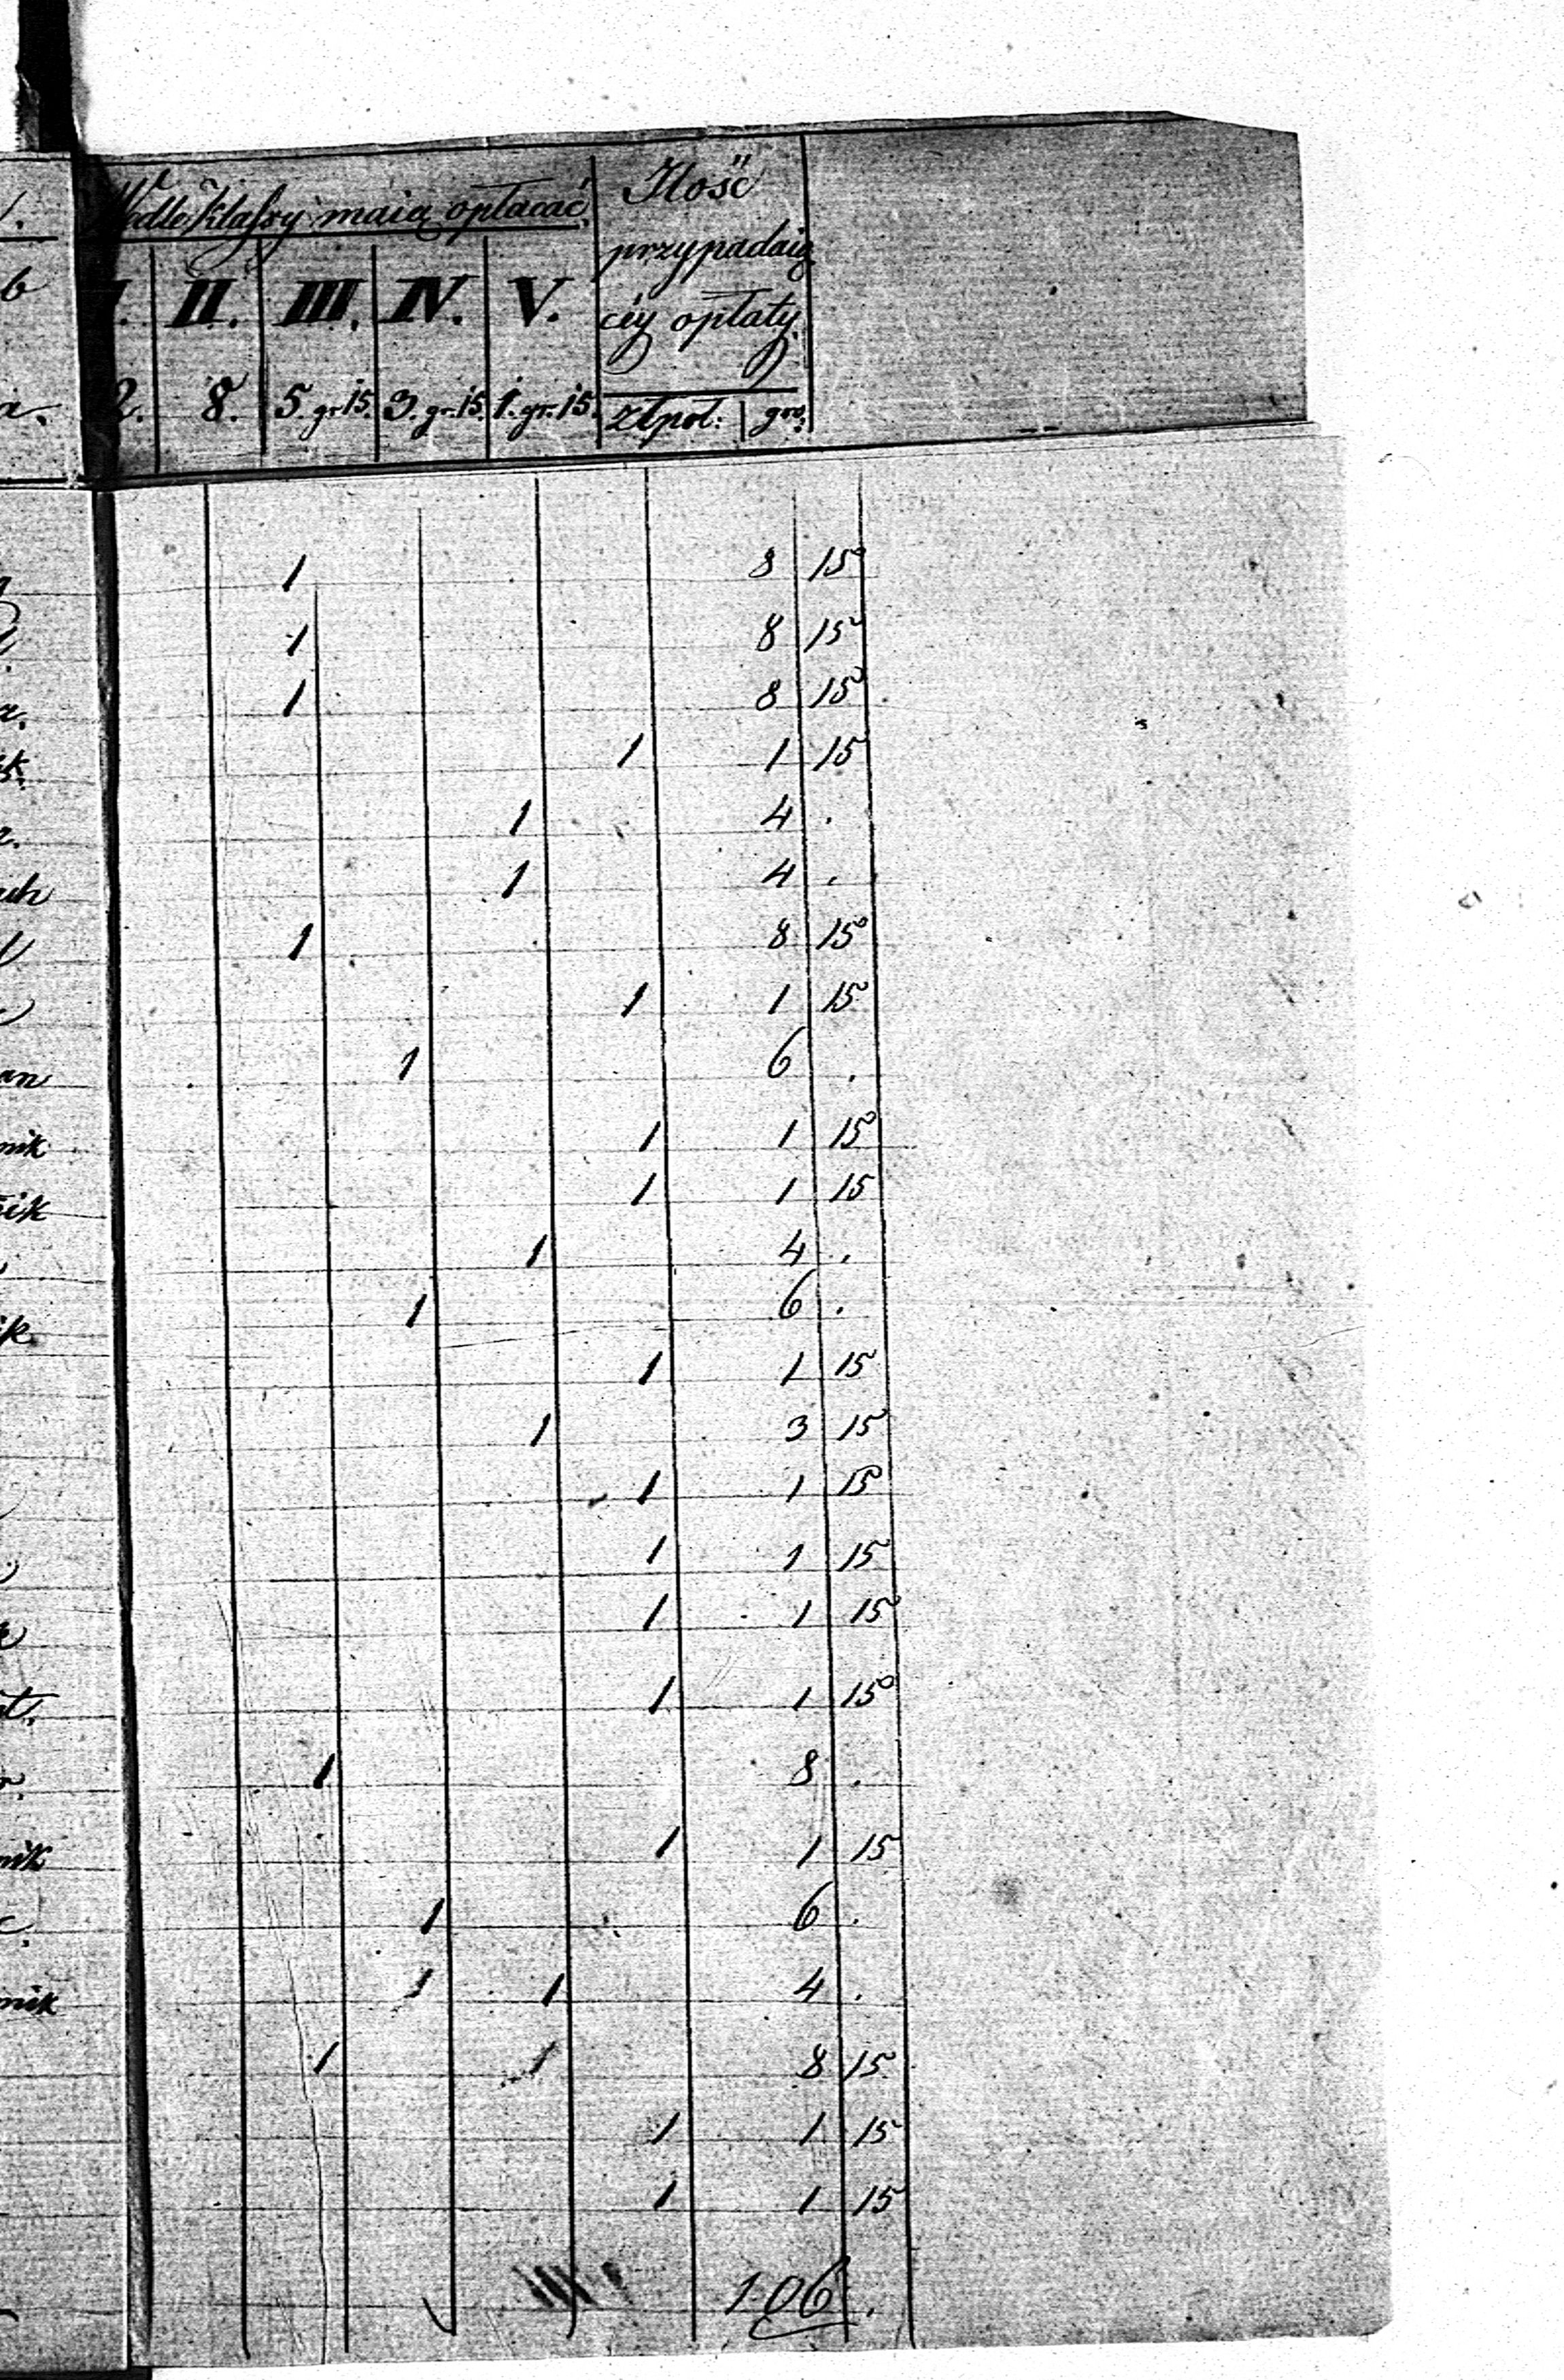 Wedle Klassy maią opłacać
Ilość
przypadaią
cey opłaty
I. II. III. IV. V.
2. 8. 5. gr 15. 3. gr. 15. 1. gr. 15.
złpol: gro.
1 8 15
1 8 15
1 8 15
1 1 15
1 4 .
1 4 .
1 8 15
1 1 15
1 6 .
mik 1 1 15
1 1 15
1 4 .
1 6 .
1 1 15
1 3 15
1 1 15
1 1 15
1 1 15
1 1 15
1 8 .
nik 1 1 15
1 6 .
nik 1 1 4 .
1 1 8 15
1 1 15
1 1 15
106 .